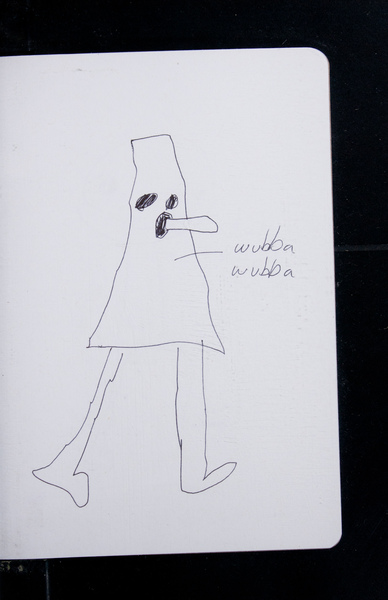 wubba
wubba